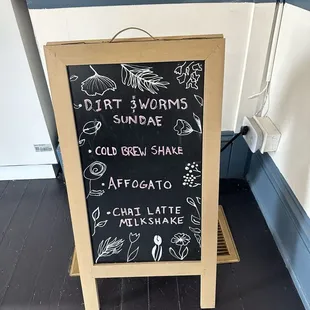 DIRT & WORMS
SUNDAE
• COLD BREW SHAKE
• AFFOGATO
• CHAI LATTE
MILKSHAKE